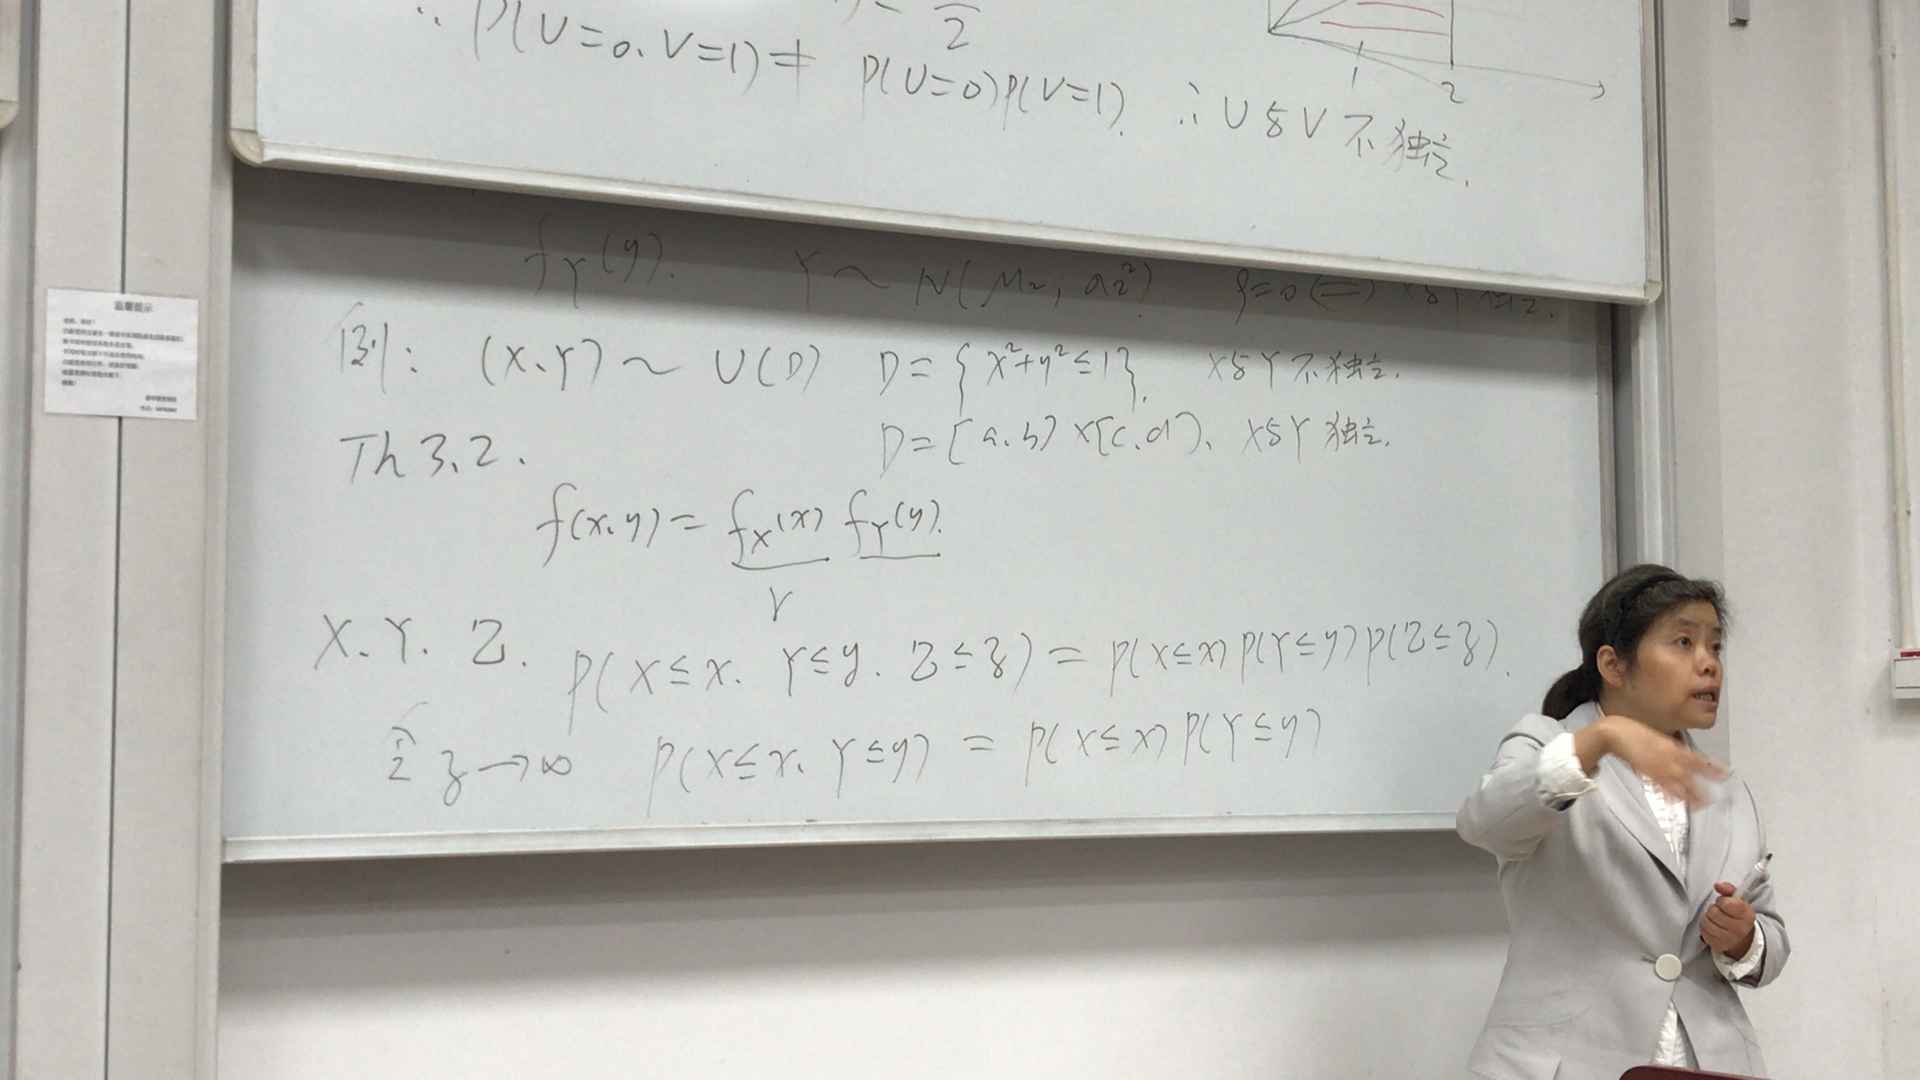 ∴ P(U=0, V=1) ≠ P(U=0)P(V=1). ∴ U与V不独立.
2
1
2
f_Y(y). Y ~ N(μ₂, σ₂²) ρ=0 ⟺ X与Y独立.
例: (X,Y) ~ U(D) D={x²+y²≤1}, X与Y不独立.
D=[a,b]×[c,d], X与Y独立.
Th 3.2.
f(x,y) = f_X(x) f_Y(y).
X. Y. Z. P(X≤x, Y≤y, Z≤z) = P(X≤x)P(Y≤y)P(Z≤z).
令 z→∞ P(X≤x, Y≤y) = P(X≤x)P(Y≤y)
温馨提示